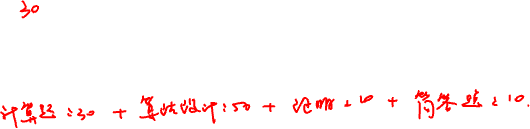 30
计算题:30 + 算法设计:50 + 证明:10 + 简答题:10.